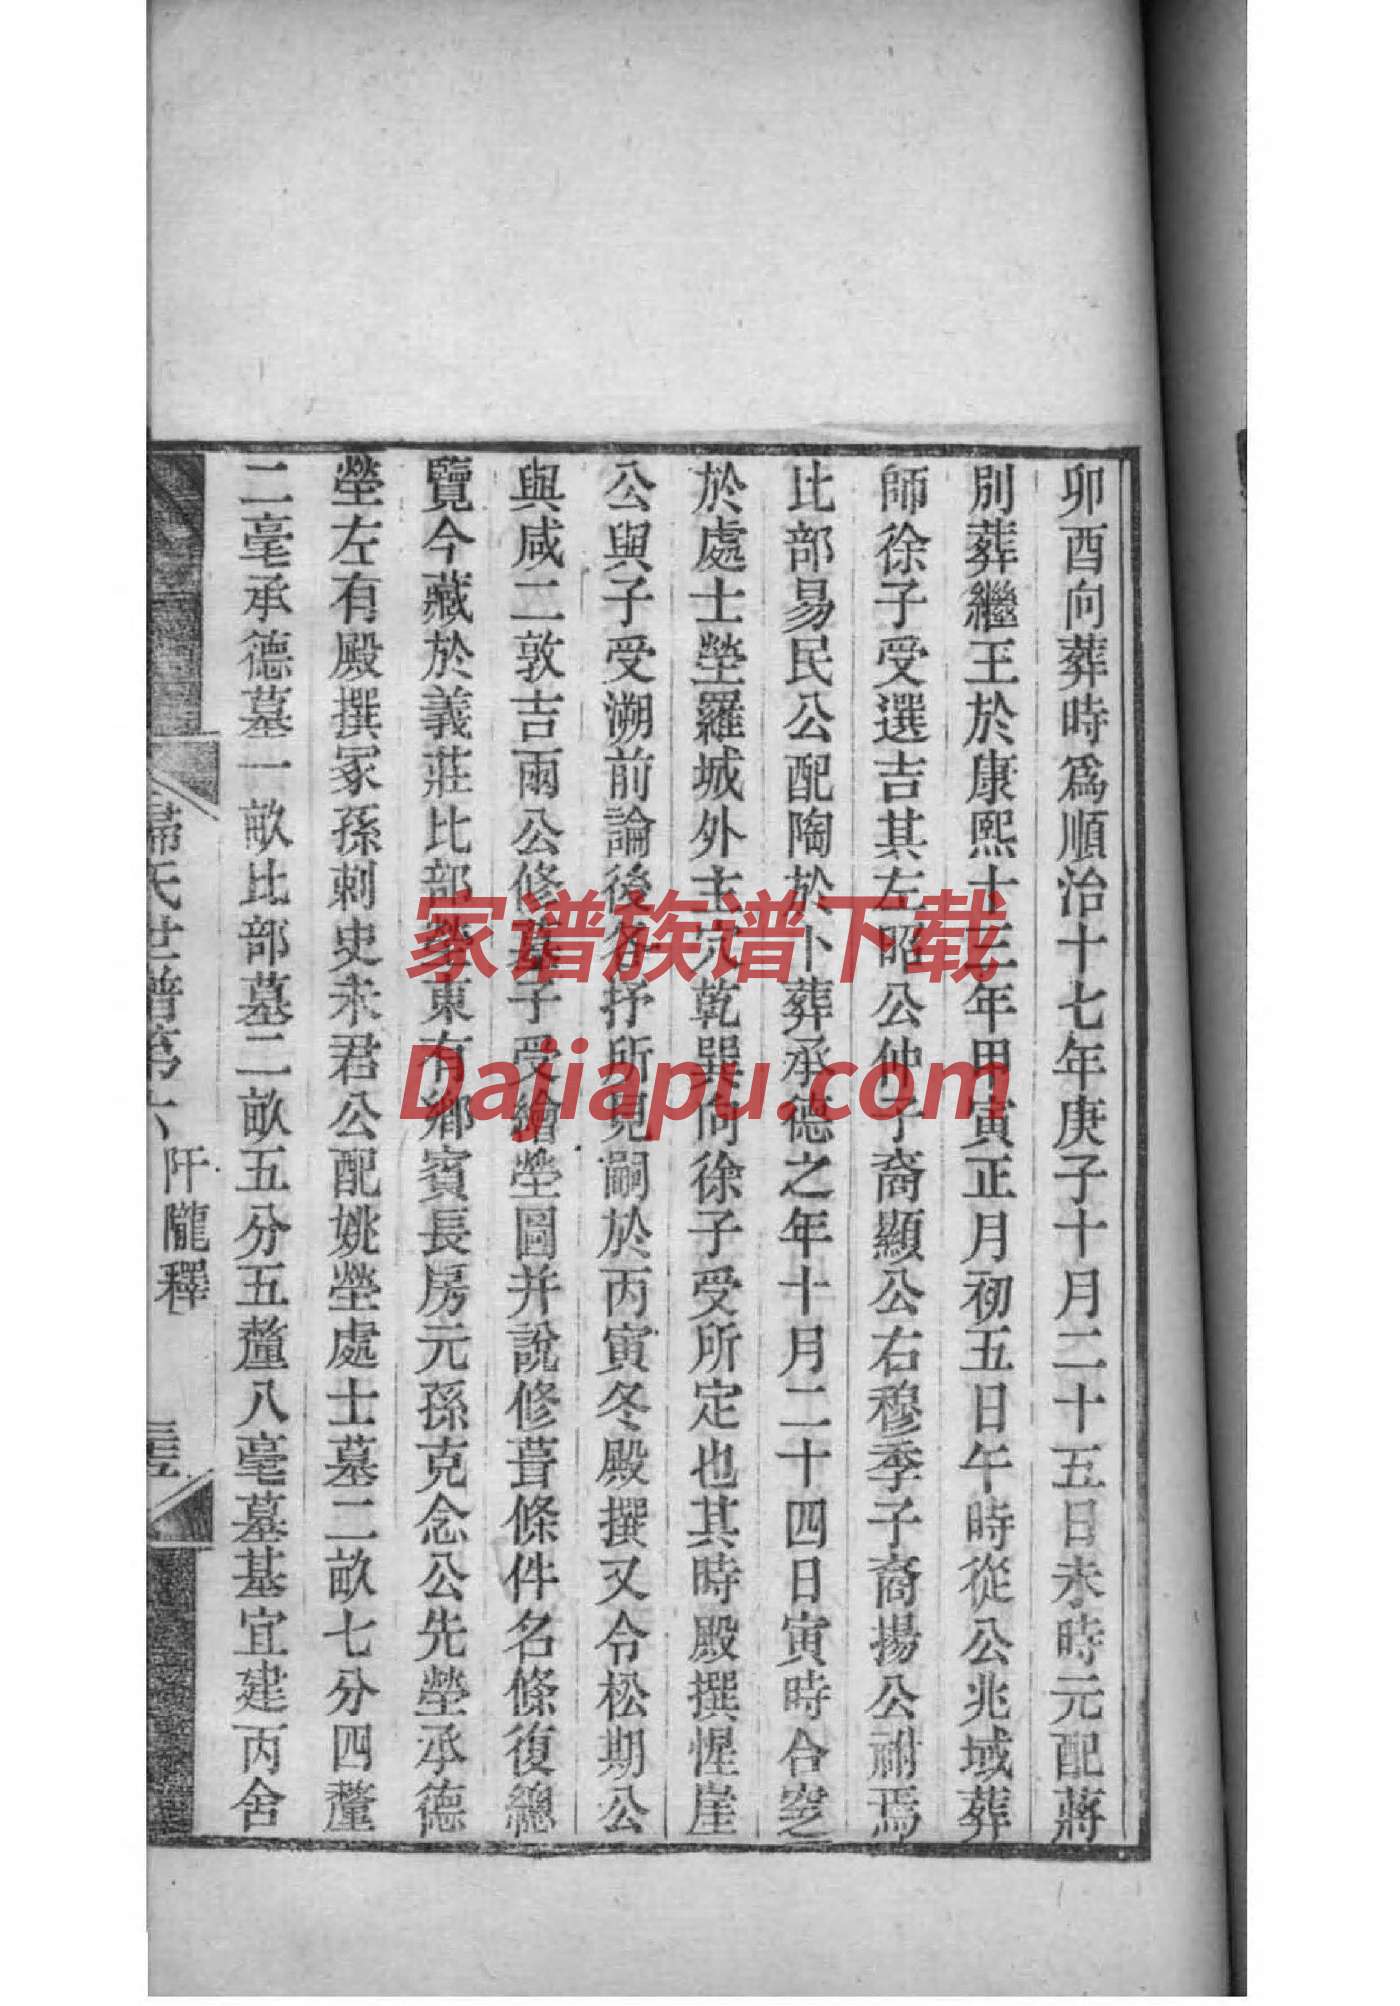 卯酉向葬時爲順治十七年庚子十月二十五日未時元配蔣
別葬繼王於康熙十三年甲寅正月初五日午時從公兆域葬
師徐子受選吉其左昭公仲子裔顯公右穆季子裔揚公祔焉
比部易民公配陶於卜葬承德之年十月二十四日寅時合窆
於處士塋羅城外主穴乾巽向徐子受所定也其時殿撰惺崖
公與子受溯前論後各抒所見嗣於丙寅冬殿撰又令松期公
與咸二敦吉兩公修墓子受繪塋圖并說修葺條件名條復總
覽今藏於義莊比部塋東有鄉賓長房元孫克念公先塋承德
塋左有殿撰冢孫刺史未君公配姚塋處士墓二畝七分四釐
二毫承德墓一畝比部墓二畝五分五釐八毫墓基宜建丙舍
歸氏世譜第六 阡隴釋
家谱族谱下载
Dajiapu.com